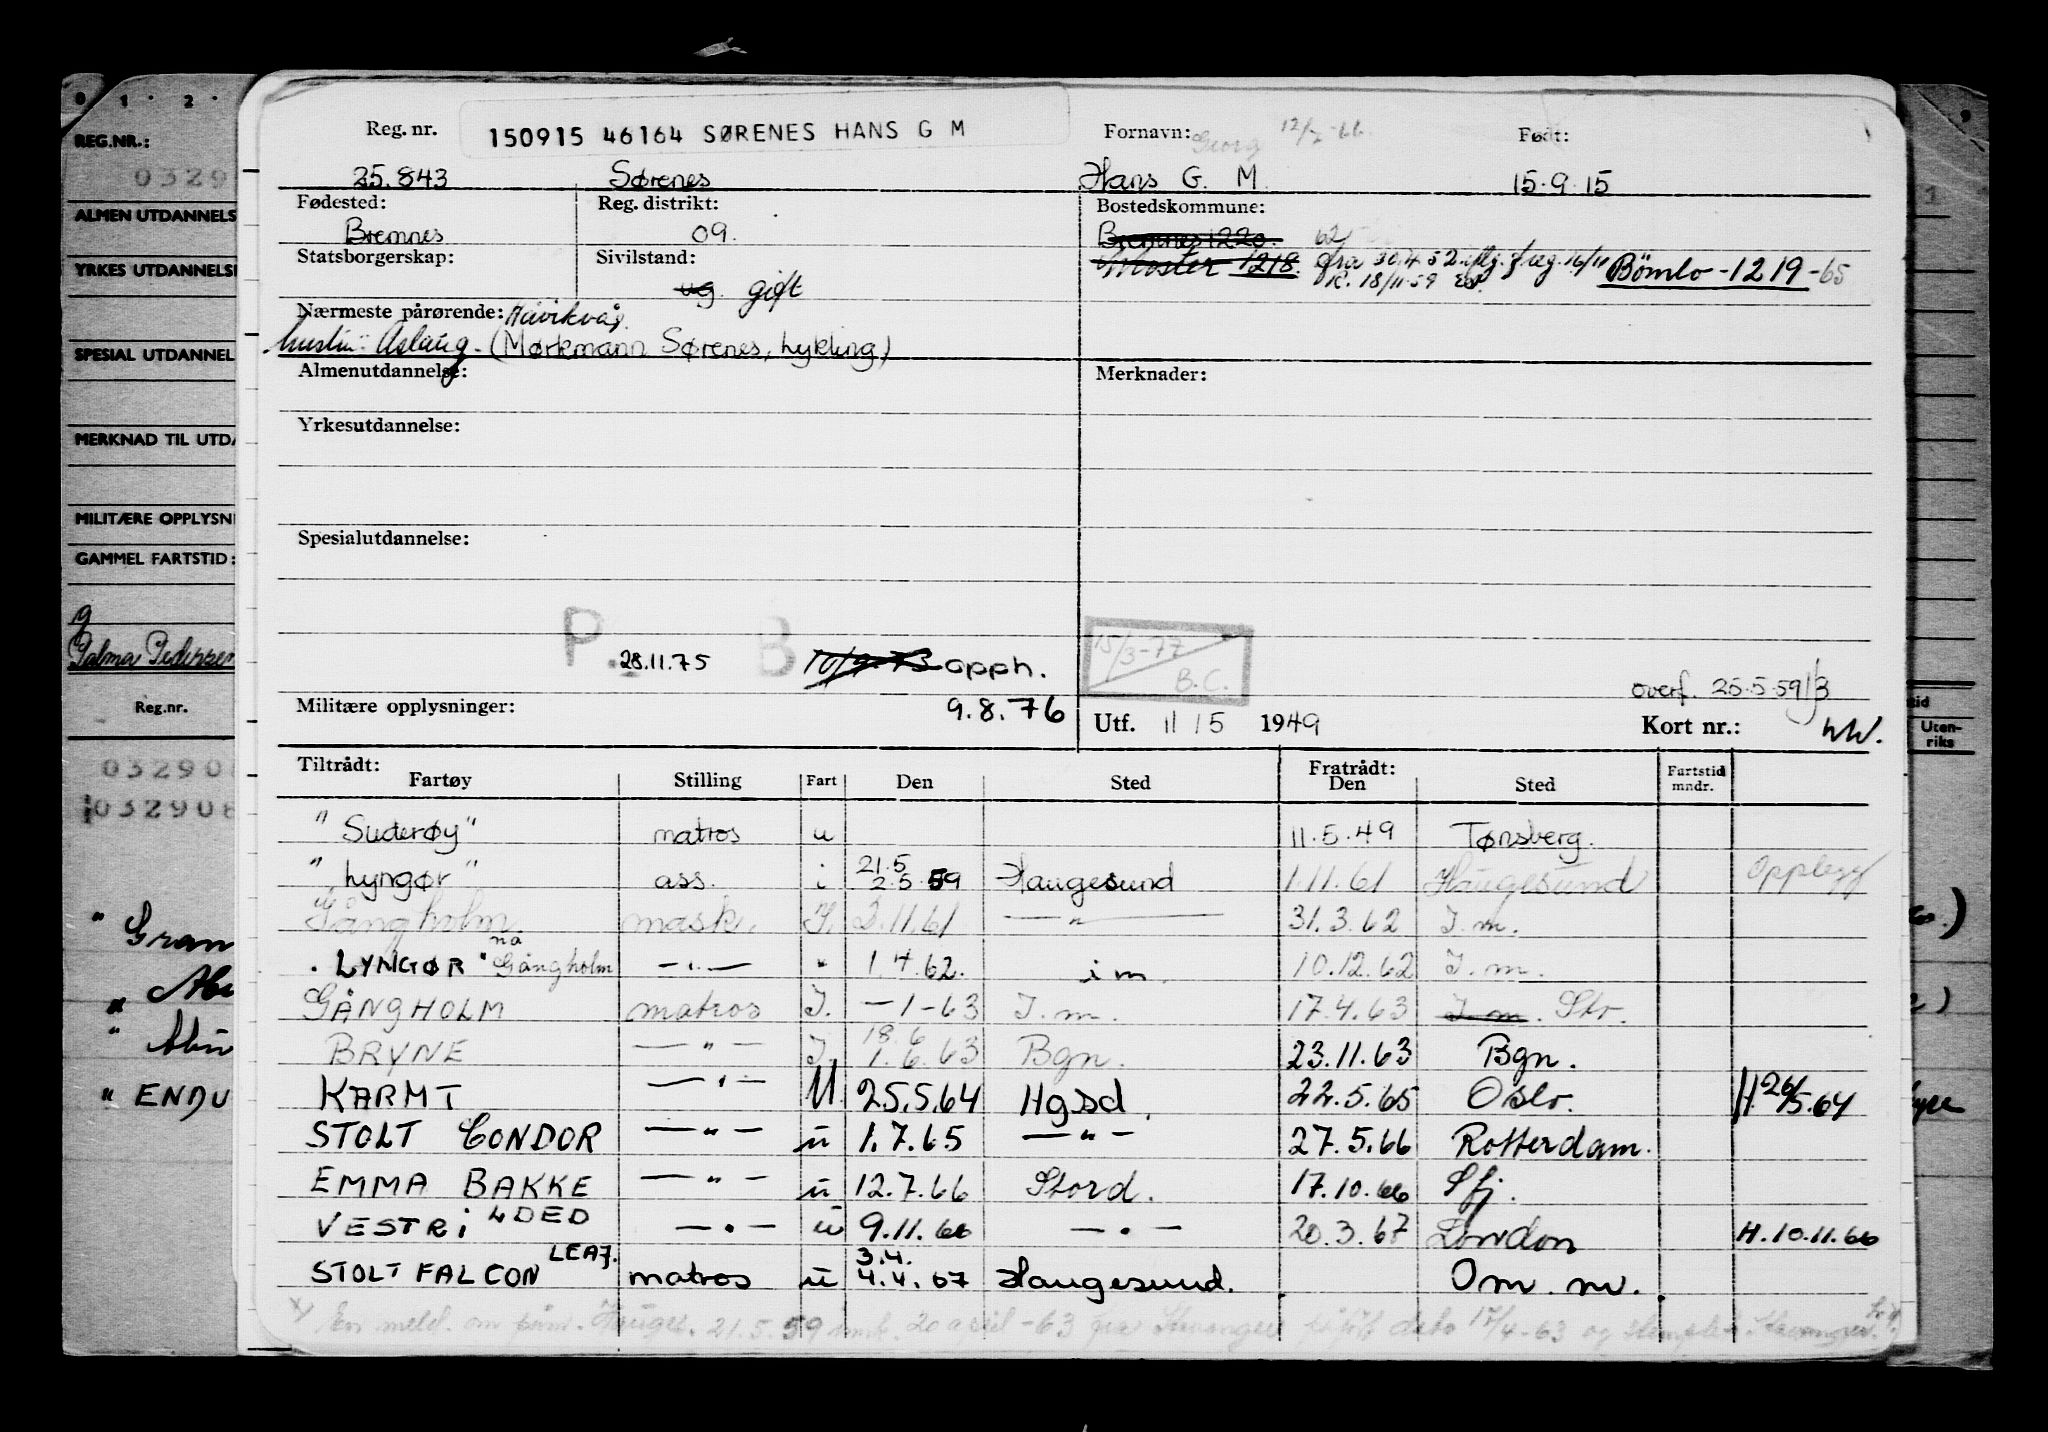 0 1 . 2 .
REG.NR.:
0329
ALMEN UTDANNELS
YRKES UTDANNELS
SPESIAL UTDANNEL
MERKNAD TIL UTDA
MILITÆRE OPPLYSN
GAMMEL FARTSTID:
Palma Pedersen
Reg.nr.
03290
032908
" Gran
" ENDU
Reg. nr. 150915 46164 SØRENES HANS G M Fornavn: Georg 12/7-66. Født:
25.843 Sørenes Hans G. M. 15.9.15
Fødested: Reg. distrikt: Bostedskommune:
Bremnes 09. Bremnes 1220. 62
Statsborgerskap: Sivilstand: Moster 1218. fra 30.4.52 16/11 Bömlo - 1219 - 65
ug. gift K. 18/11-59
Nærmeste pårørende: Hávikvåg.
hustru: Aslaug. (Mørkmann Sørenes, Lykling)
Almenutdannelse: Merknader:
Yrkesutdannelse:
Spesialutdannelse:
P. 28.11.75 B 10/9-73 opph. 15/3-77 B.C.
overf. 25.5.59
Militære opplysninger: 9.8.76 Utf. 11/5 1949 Kort nr.:
Tiltrådt: Fratrådt:
Fartøy Stilling Fart Den Sted Den Sted Fartstid mndr.
Uten-
riks
"Suderøy" matros u 11.5.49 Tønsberg.
"Lyngør" ass. i 21.5 2.5.59 Haugesund 1.11.61 Haugesund Opplegg
Gångholm mask. I. 2.11.61 — " — 31.3.62 I.m.
. LYNGØR " nå Gångholm — . — " 1.4.62. i m. 10.12.62 I.m.
GÅNGHOLM matros I. — 1-63 I.m. 17.4.63 I.m. Stv.
BRYNE — " — I. 18.6 1.6.63 Bgn. 23.11.63 Bgn.
KARMT — " — U. 25.5.64 Hgsd. 22.5.65 Oslo. H. 26/5.64
STOLT CONDOR — " — u 1.7.65 — " — 27.5.66 Rotterdam.
EMMA BAKKE — " — u 12.7.66 Stord. 17.10.66 Sfj.
VESTRI LDED — " — u 9.11.66 — " — 20.3.67 London H. 10.11.66
STOLT FALCON LEAJ. matros u 3.4. 4.4.67 Haugesund. Om. m.
x/ En meld. om påm. Hauges. 21.5.59 20 april -63 fra Stavanger dato 17/4-63 og stemplet Stavanger.